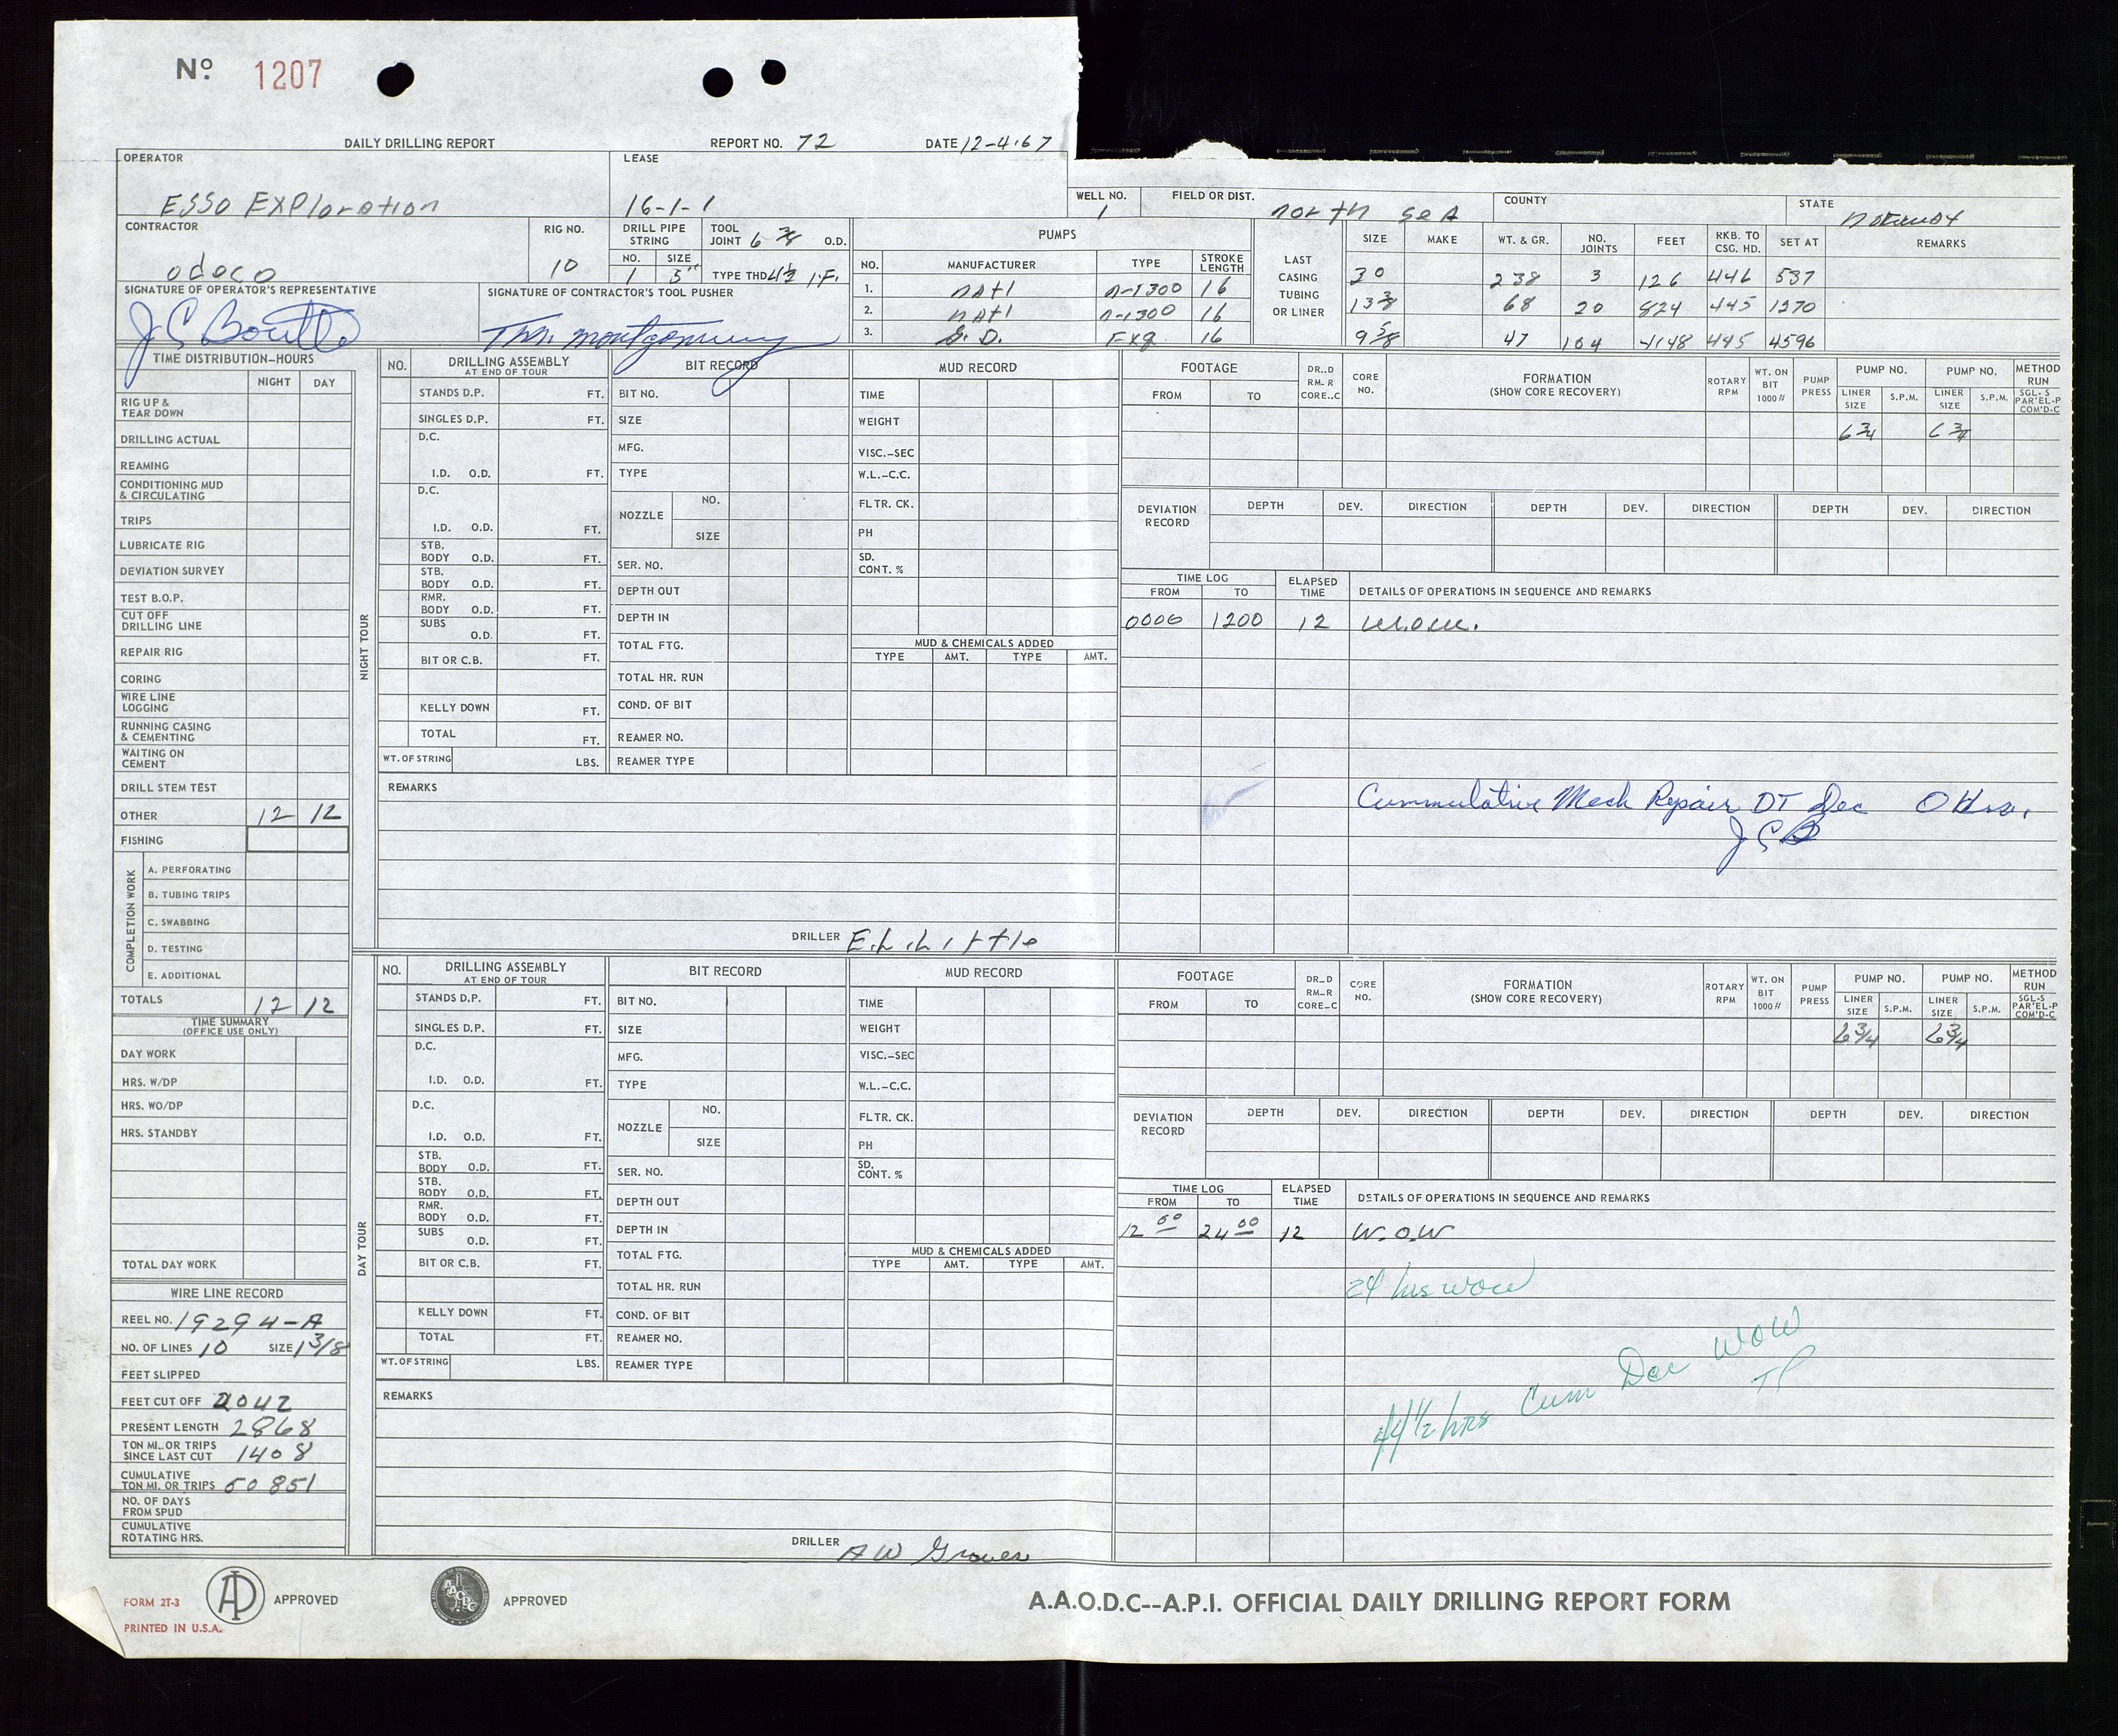 Nº 1207
DAILY DRILLING REPORT REPORT NO. 72 DATE 12-4-67
OPERATOR LEASE
ESSO EXPloration 16-1-1
WELL NO. 1 FIELD OR DIST. north sea COUNTY STATE
CONTRACTOR RIG NO. DRILL PIPE STRING TOOL JOINT 6 3/8 O.D. PUMPS
odeco 10 NO. 1 SIZE 5" TYPE THD 4½ I.F.
NO. MANUFACTURER TYPE STROKE LENGTH
1. nAtl n-1300 16
2. nAtl n-1300 16
3. G.D. FXQ 16
LAST CASING TUBING OR LINER
SIZE MAKE WT. & GR. NO. JOINTS FEET RKB. TO CSG. HD. SET AT REMARKS
30 238 3 126 446 537
13 3/8 68 20 824 445 1270
9 5/8 47 104 4148 445 4596
SIGNATURE OF OPERATOR'S REPRESENTATIVE SIGNATURE OF CONTRACTOR'S TOOL PUSHER
J C Boutte Thos. Montgomery
TIME DISTRIBUTION–HOURS
NIGHT DAY
RIG UP & TEAR DOWN
DRILLING ACTUAL
REAMING
CONDITIONING MUD & CIRCULATING
TRIPS
LUBRICATE RIG
DEVIATION SURVEY
TEST B.O.P.
CUT OFF DRILLING LINE
REPAIR RIG
CORING
WIRE LINE LOGGING
RUNNING CASING & CEMENTING
WAITING ON CEMENT
DRILL STEM TEST
OTHER 12 12
FISHING
COMPLETION WORK
A. PERFORATING
B. TUBING TRIPS
C. SWABBING
D. TESTING
E. ADDITIONAL
TOTALS 12 12
TIME SUMMARY
(OFFICE USE ONLY)
DAY WORK
HRS. W/DP
HRS. WO/DP
HRS. STANDBY
TOTAL DAY WORK
WIRE LINE RECORD
REEL NO. 19294-A
NO. OF LINES 10 SIZE 1 3/8
FEET SLIPPED
FEET CUT OFF 2042
PRESENT LENGTH 2868
TON MI. OR TRIPS SINCE LAST CUT 1408
CUMULATIVE TON MI. OR TRIPS 50851
NO. OF DAYS FROM SPUD
CUMULATIVE ROTATING HRS.
NIGHT TOUR
NO. DRILLING ASSEMBLY AT END OF TOUR
STANDS D.P. FT.
SINGLES D.P. FT.
D.C.
I.D. O.D. FT.
D.C.
I.D. O.D. FT.
STB. BODY O.D. FT.
STB. BODY O.D. FT.
RMR. BODY O.D. FT.
SUBS O.D. FT.
BIT OR C.B. FT.
KELLY DOWN FT.
TOTAL FT.
WT. OF STRING LBS.
BIT RECORD
BIT NO.
SIZE
MFG.
TYPE
NOZZLE NO.
SIZE
SER. NO.
DEPTH OUT
DEPTH IN
TOTAL FTG.
TOTAL HR. RUN
COND. OF BIT
REAMER NO.
REAMER TYPE
MUD RECORD
TIME
WEIGHT
VISC.–SEC
W.L.–C.C.
FLTR. CK.
PH
SD. CONT. %
MUD & CHEMICALS ADDED
TYPE AMT. TYPE AMT.
REMARKS
DRILLER E.L. Little
FOOTAGE DR..D RM..R CORE..C CORE NO. FORMATION (SHOW CORE RECOVERY) ROTARY RPM WT. ON BIT 1000# PUMP PRESS PUMP NO. PUMP NO. METHOD RUN
FROM TO LINER SIZE S.P.M. LINER SIZE S.P.M. SGL-S PAR'EL-P COM'D-C
6 3/4 6 3/4
DEVIATION RECORD DEPTH DEV. DIRECTION DEPTH DEV. DIRECTION DEPTH DEV. DIRECTION
TIME LOG ELAPSED TIME DETAILS OF OPERATIONS IN SEQUENCE AND REMARKS
FROM TO
0000 1200 12 W.O.W.
Cummulative Mech Repair DT Dec 0 Hrs.
JCB
DAY TOUR
NO. DRILLING ASSEMBLY AT END OF TOUR
STANDS D.P. FT.
SINGLES D.P. FT.
D.C.
I.D. O.D. FT.
D.C.
I.D. O.D. FT.
STB. BODY O.D. FT.
STB. BODY O.D. FT.
RMR. BODY O.D. FT.
SUBS O.D. FT.
BIT OR C.B. FT.
KELLY DOWN FT.
TOTAL FT.
WT. OF STRING LBS.
BIT RECORD
BIT NO.
SIZE
MFG.
TYPE
NOZZLE NO.
SIZE
SER. NO.
DEPTH OUT
DEPTH IN
TOTAL FTG.
TOTAL HR. RUN
COND. OF BIT
REAMER NO.
REAMER TYPE
MUD RECORD
TIME
WEIGHT
VISC.–SEC
W.L.–C.C.
FLTR. CK.
PH
SD. CONT. %
MUD & CHEMICALS ADDED
TYPE AMT. TYPE AMT.
REMARKS
DRILLER AW Graves
FOOTAGE DR...D RM...R CORE...C CORE NO. FORMATION (SHOW CORE RECOVERY) ROTARY RPM WT. ON BIT 1000# PUMP PRESS PUMP NO. PUMP NO. METHOD RUN
FROM TO LINER SIZE S.P.M. LINER SIZE S.P.M. SGL-S PAR'EL-P COM'D-C
6 3/4 6 3/4
DEVIATION RECORD DEPTH DEV. DIRECTION DEPTH DEV. DIRECTION DEPTH DEV. DIRECTION
TIME LOG ELAPSED TIME DETAILS OF OPERATIONS IN SEQUENCE AND REMARKS
FROM TO
12 00 24 00 12 W.O.W
24 hrs wow
44 1/2 hrs Cum Dec WOW
TP
FORM 2T-3
PRINTED IN U.S.A.
API APPROVED
AAODC APPROVED
A.A.O.D.C--A.P.I. OFFICIAL DAILY DRILLING REPORT FORM